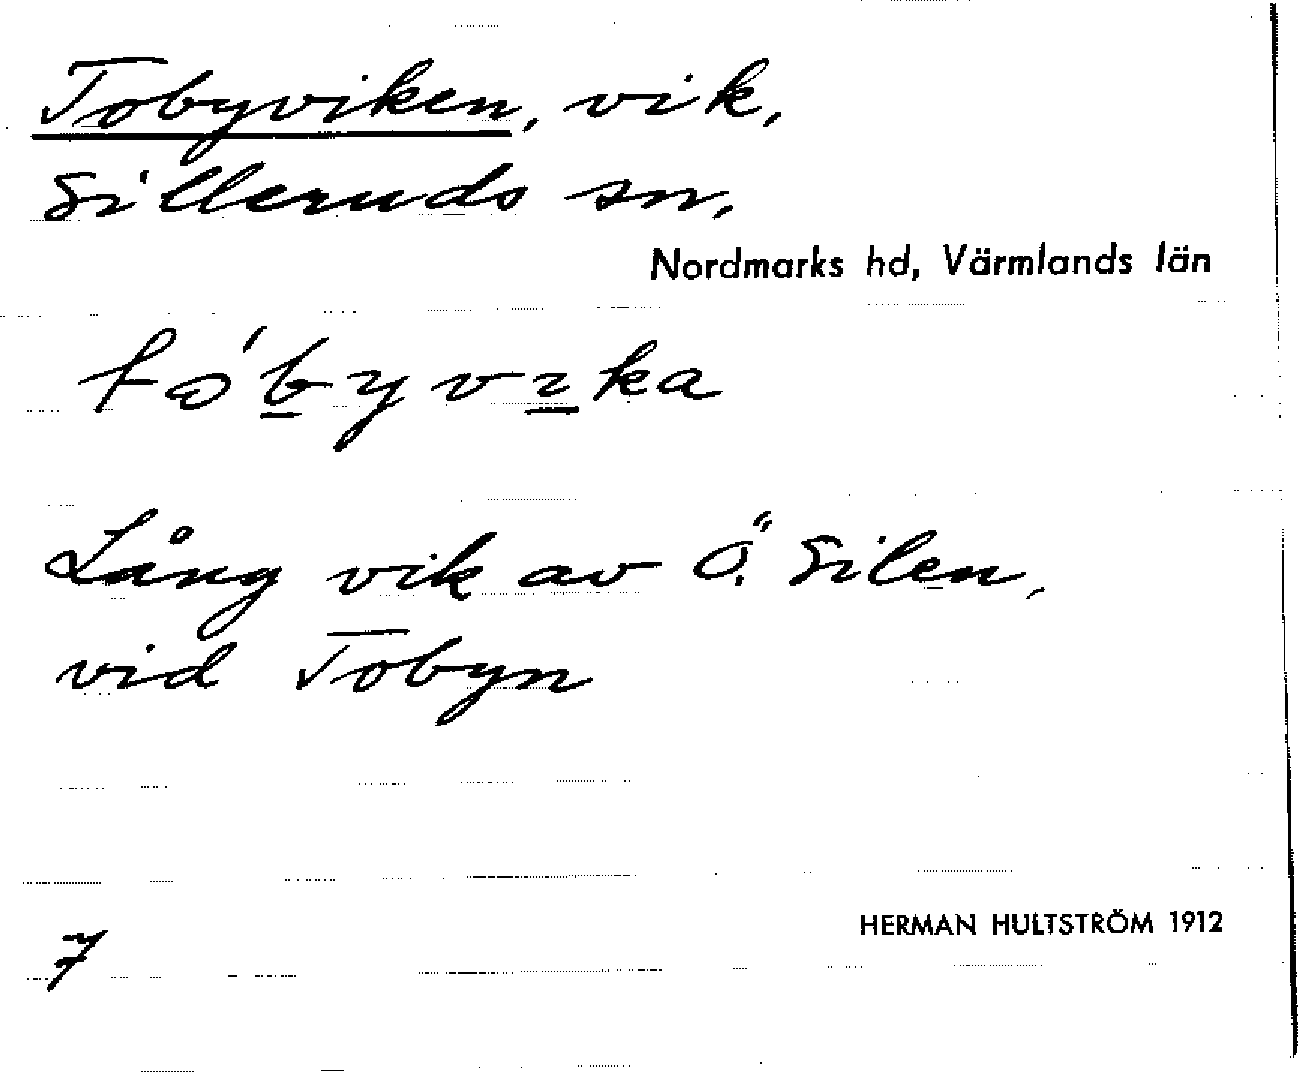 Tobyviken, vik,
Silleruds sn,
Nordmarks hd, Värmlands län
tó̀byvıka
Lång vik av Ö. Silen,
vid Tobyn
HERMAN HULTSTRÖM 1912
7